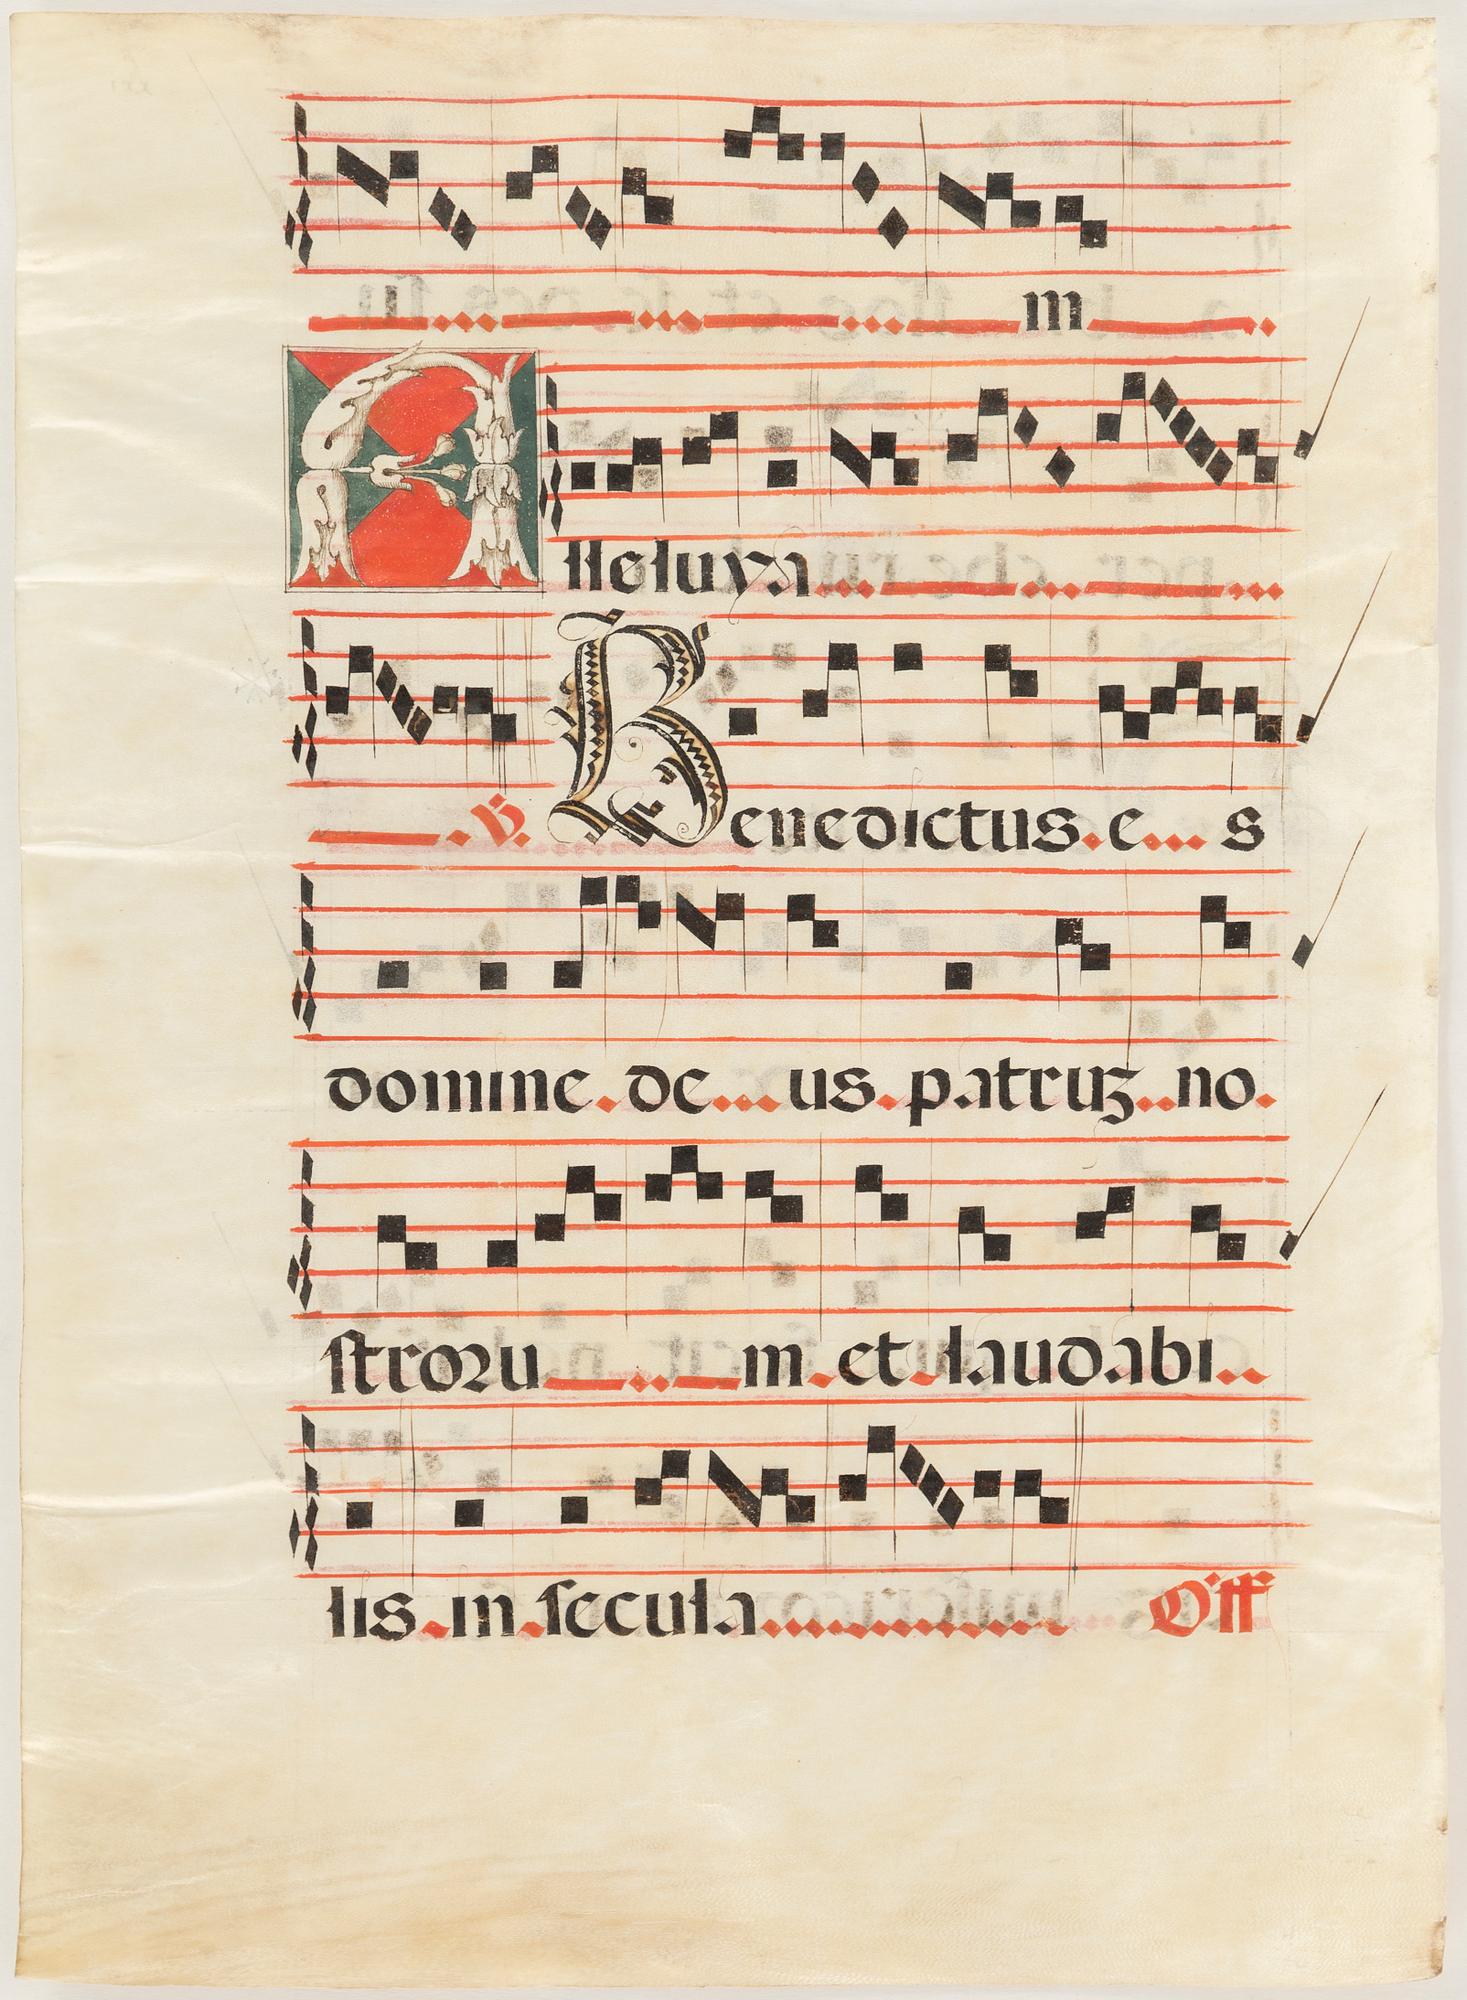 m
Alleluya
℣. Benedictus. e s
domine. de us. patruꝫ no.
ſtroꝛu m. et. laudabi
lis. in. ſecula Off